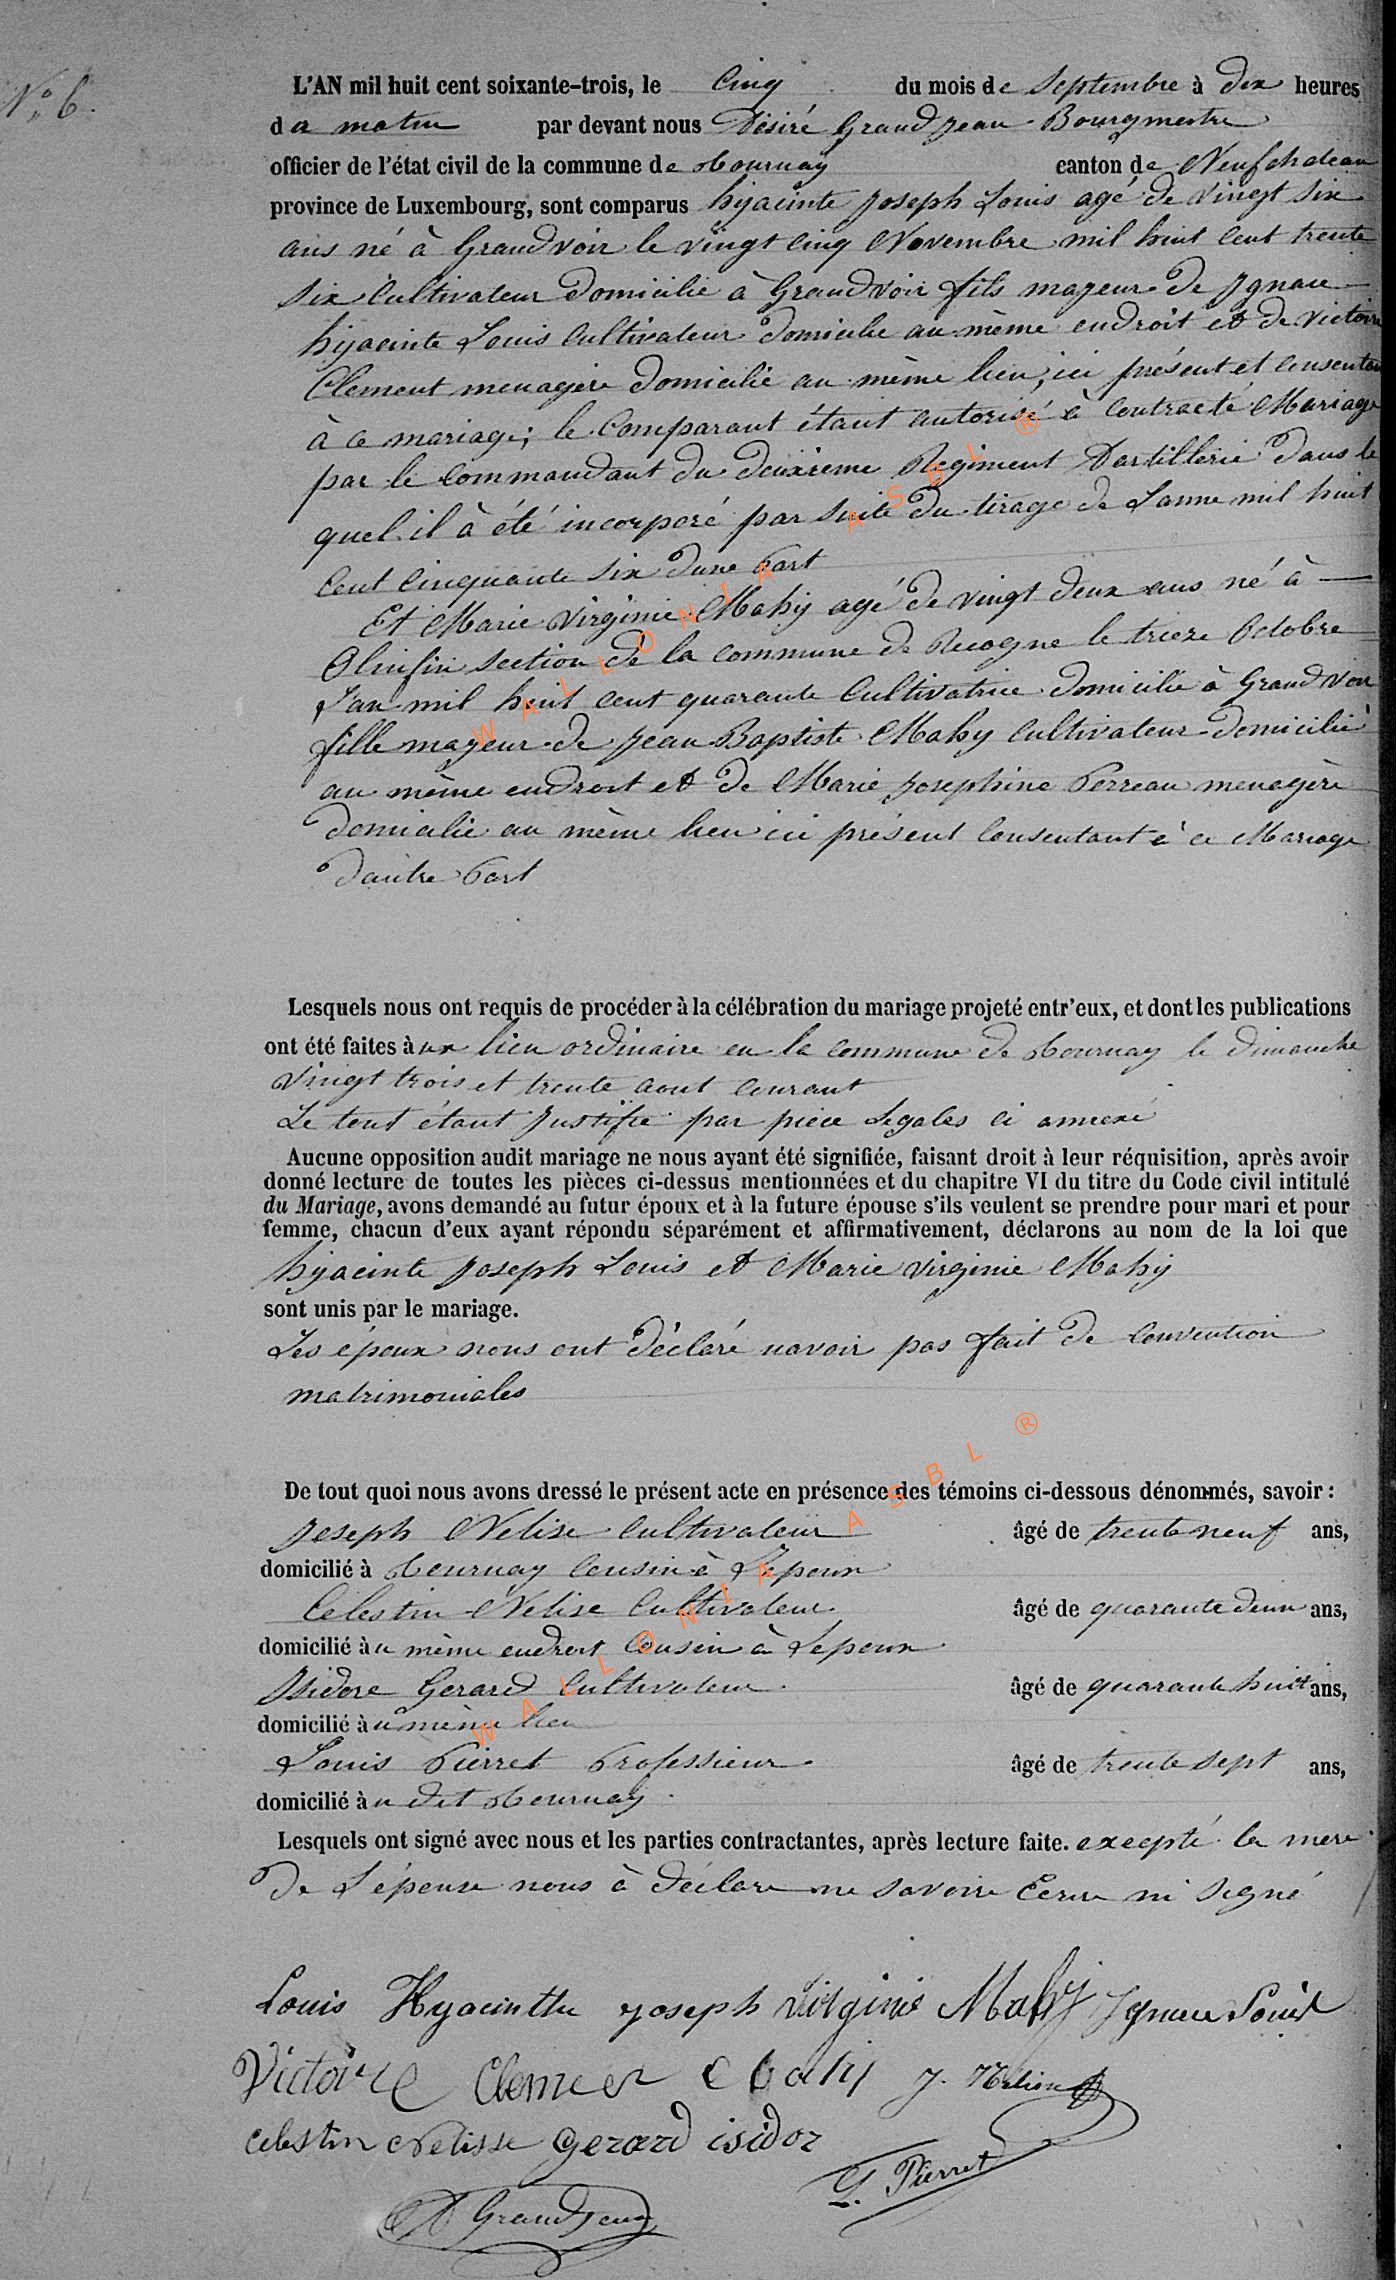 N° 6.
L'AN mil huit cent soixante-trois, le Cinq du mois de Septembre à dix heures
du matin par devant nous Désiré Grandjean Bourgmestre
officier de l'état civil de la commune de Tournay canton de Neufchateau
province de Luxembourg, sont comparus hyacinte Joseph Louis agé de vingt six
ans né à Grandvoir le vingt cinq Novembre mil huit cent trente
six Cultivateur domicilié à Grandvoir fils majeur de Ignace
hyacinte Louis Cultivateur domicilie au même endroit et de Victoire
Clement menagère domicilié au même lieu, ici présent et consentant
à ce mariage; le Comparant étant autorisé à contracté Mariage
par le Commandant du deuxieme Regiment Dartillerie dans le
quel il à été incorporé par suite du tirage de Lanne mil huit
cent cinquante six dune Part
Et Marie Virginie Mahy agé de vingt deux ans né à
section de la commune de Recogne le trieze Octobre
l'an mil huit cent quarante Cultivatrice domicilie à Grandvoir
fille majeur de Jean Baptiste Mahy Cultivateur domicilié
au même endroit et de Marie Josephine Perreau menagère
domicilie au même lieu ici présent Consentant à ce Mariage
dautre Part
Lesquels nous ont requis de procéder à la célébration du mariage projeté entr'eux, et dont les publications
ont été faites aux lieu ordinaire en la commune de Tournay le dimanche
vingt trois et trente aout courant
Le tout étant Justifié par piece Legales ci annexé
Aucune opposition audit mariage ne nous ayant été signifiée, faisant droit à leur réquisition, après avoir
donné lecture de toutes les pièces ci-dessus mentionnées et du chapitre VI du titre du Code civil intitulé
du Mariage, avons demandé au futur époux et à la future épouse s'ils veulent se prendre pour mari et pour
femme, chacun d'eux ayant répondu séparément et affirmativement, déclarons au nom de la loi que
hyacinte Joseph Louis et Marie Virginie Mahy
sont unis par le mariage.
Les époux nous ont déclaré navoir pas fait de Convention
matrimoniales
De tout quoi nous avons dressé le présent acte en présence des témoins ci-dessous dénommés, savoir :
Joseph Nelise Cultivateur âgé de trente neuf ans,
domicilié à Tournay Cousin à Lepoux
Celestin Nelise Cultivateur âgé de quarante deux ans,
domicilié au même endroit Cousin à Lepoux
Isidore Gerard Cultivateur âgé de quarante huit ans,
domicilié au même lieu
Louis Pierret Professieur âgé de trente sept ans,
domicilié au dit Tournay
Lesquels ont signé avec nous et les parties contractantes, après lecture faite. excepté la mere
de L'épouse nous à déclare ne savoire Ecrire ni signé
Louis Hyacinthe Joseph Virginie Mahy Ignace Louis
Victoire Clement Mahy J. Nelisse
Celestin Nelisse Gerard isidor
L. Pierret
D Grandjean
WALLONIA ASBL ®
WALLONIA ASBL ®